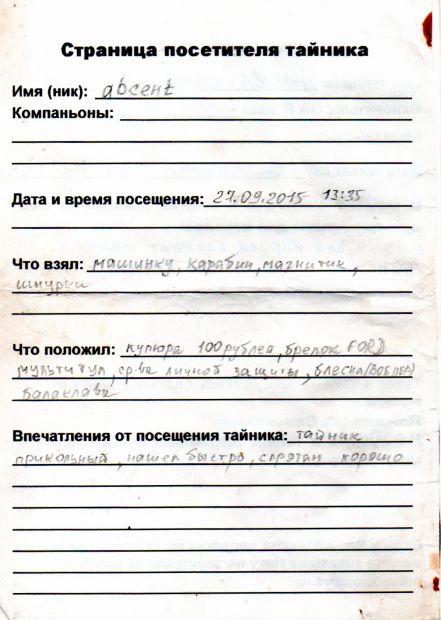 Страница посетителя тайника
Имя (ник): absent
Компаньоны:
Дата и время посещения: 27.09.2015 13:35
Что взял: машинку, карабин, магнитик,
шнурки
Что положил: купюра 100 рублей, брелок FORD
мультитул, ср-ва личной защиты, блесна (воблер)
балаклава
Впечатления от посещения тайника: тайник
прикольный, нашел быстро, спрятан хорошо